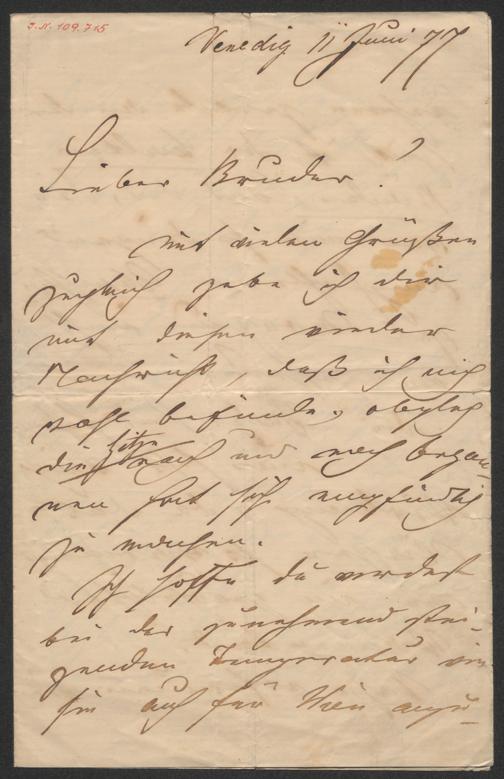 J.N. 109.715
Venedig 11 Juni 77
Lieber Bruder!
mit vielen Grüßen
zugleich gebe ich dir
mit diesen wieder
Nachricht, daß ich mich
wohl befinde, obgleich
die Hitze nach und nach begon-
nen hat sich empfindlich
zu machen.
Ich hoffe du werdest
bei der zunehmend stei-
genden Temperatur
auch für Wien